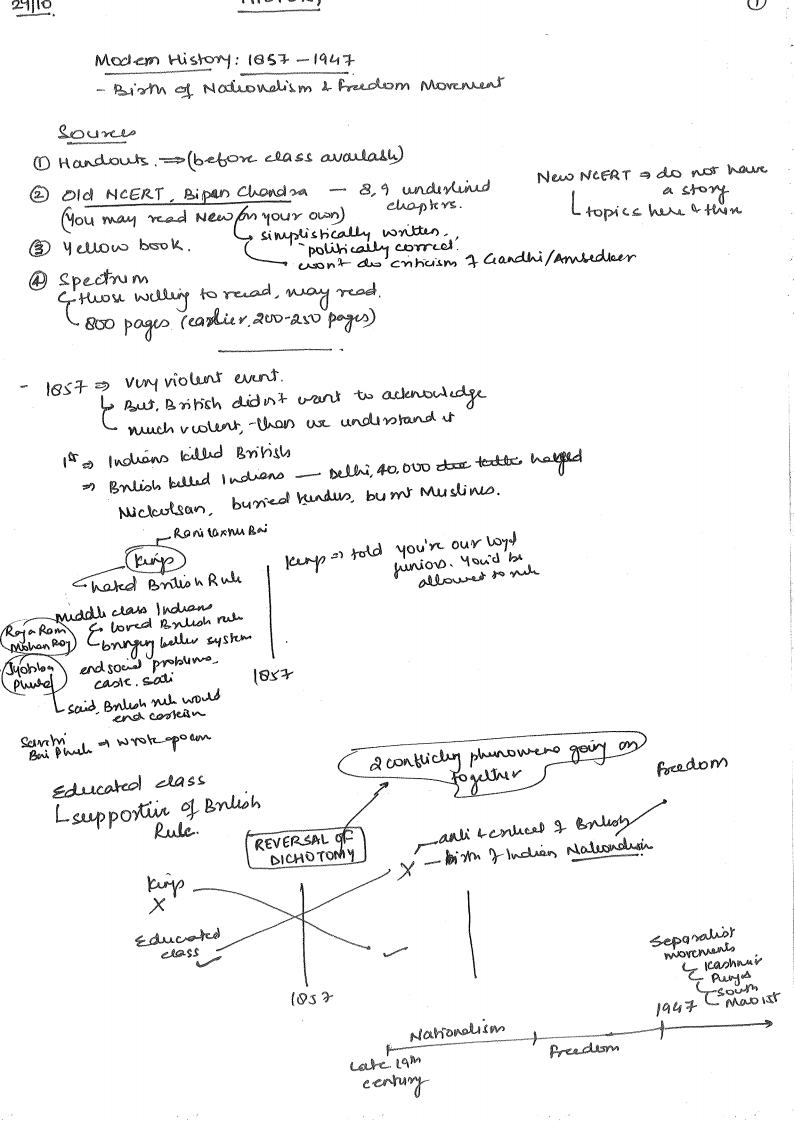 29/10
HISTORY
①
Modern History: 1857 – 1947
- Birth of Nationalism & Freedom Movement
Sources
① Handouts. ⇒ (before class available)
② Old NCERT, Bipan Chandra — 8, 9 underlined
chapters.
(You may read New on your own)
↳ simplistically written.,
politically correct.
won't do criticism of Gandhi/Ambedker
New NCERT ⇒ do not have
a story
topics here & there
③ Yellow book.
④ Spectrum
↳ those willing to read, may read.
800 pages (earlier, 200-250 pages)
- 1857 ⇒ Very violent event.
But, British didn't want to acknowledge
much violent, than we understand it
1st ⇒ Indians killed British
⇒ British killed Indians — Delhi, 40,000 hanged
Nickolsan, buried hindus, burnt Muslims.
Rani Laxmi Bai
Kings
hated British Rule
Kings ⇒ told you're our loyal
juniors. You'd be
allowed to rule
Middle class Indians
↳ loved British rule
bringing better system
Raja Ram
Mohan Roy
end social problems,
caste, sati
Jyotiba
Phule
said, British rule would
end casteism
1857
Savitri
Bai Phule ⇒ wrote poem
2 conflicting phenomena going on
together
Freedom
Educated class
↳ supportive of British
Rule.
REVERSAL OF
DICHOTOMY
anti & critical of British
X – birth of Indian Nationalism
Kings
X
Educated
class ✓
✓
1857
Separatist
movements
Kashmir
Punjab
South
Maoist
1947
Nationalism
Freedom
Late 19th
century